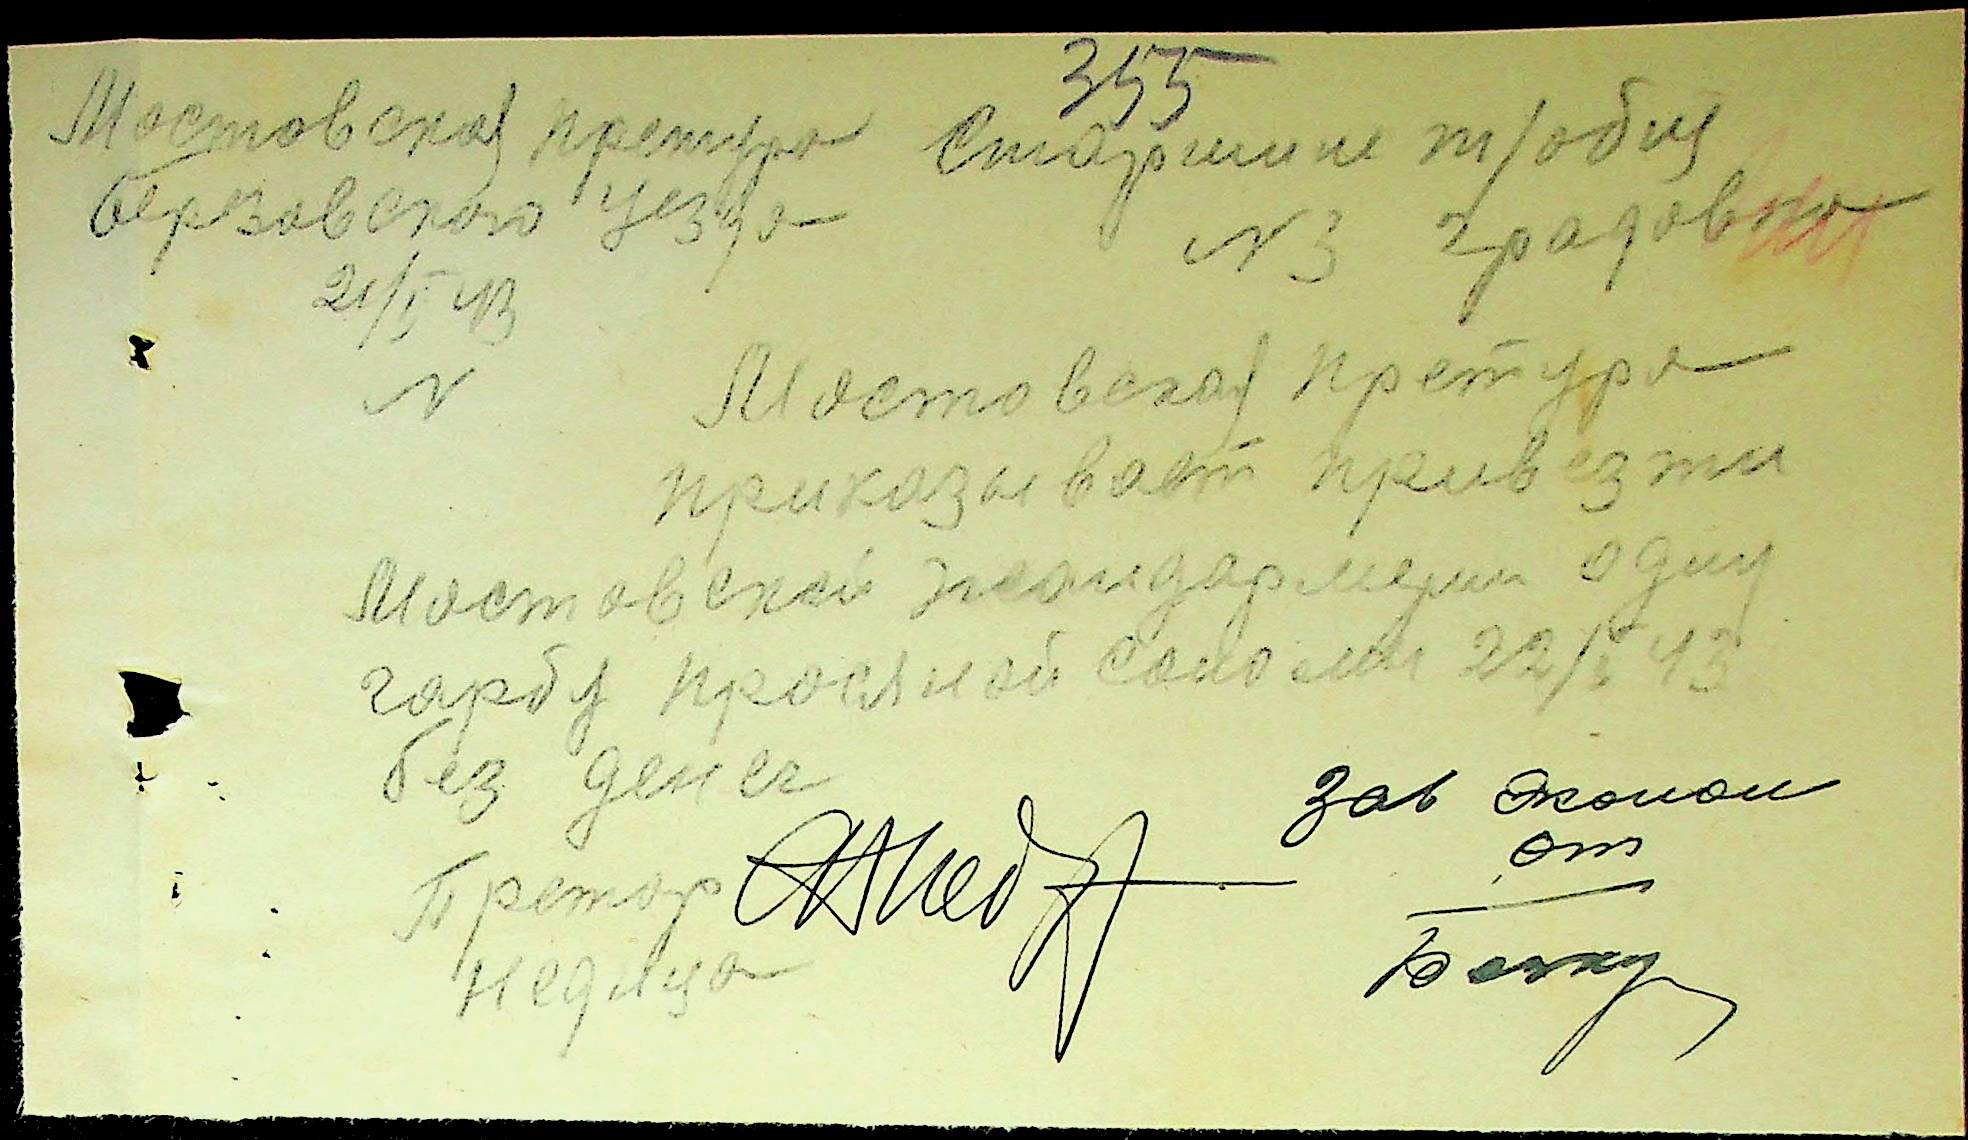 355
Мостовская претура
Березовского уезда
21/I 43
N
Старшине т/общ
N 3 Градовка
Мостовская претура
приказывает привезти
Мостовской жандармерии одну
гарбу просяной соломи 22/I 43
без денег
Претор
Недилца
Зав эконом
от